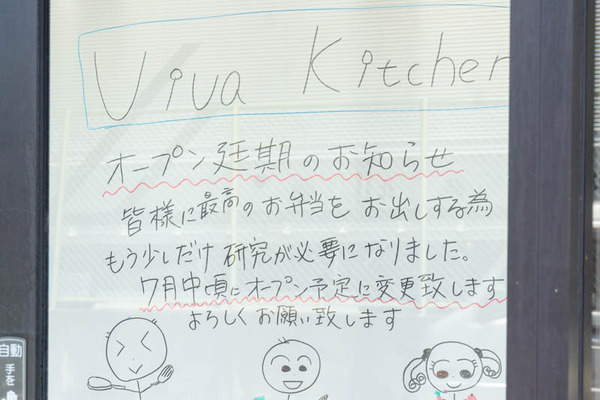 Viva Kitchen
オープン延期のお知らせ
皆様に最高のお弁当を お出しする為
もう少しだけ 研究が必要になりました。
7月中頃にオープン予定に変更致します
よろしくお願い致します
自動
手を